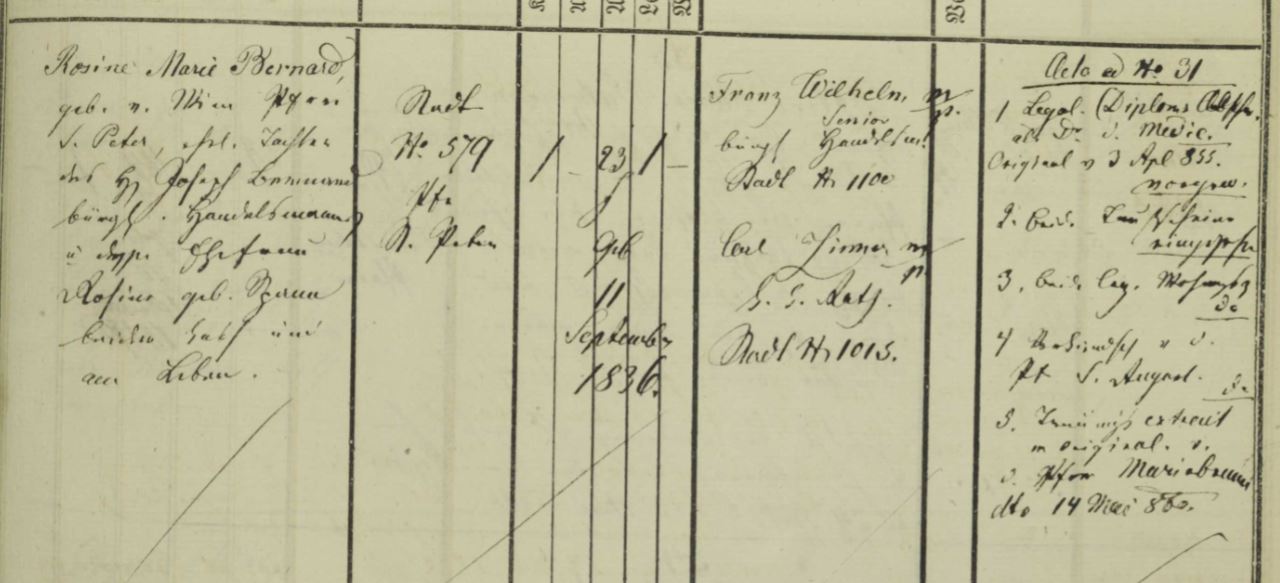 Rosine Marie Bernard,
geb. v. Wien Pfarr
S. Peter, ehel. Tochter
des H. Joseph Bernard
bürgl. Handelsmann
u dessen Ehefrau
Rosine geb.
beider kath und
am Leben.
Stadt
No. 579
Pfr
St. Peter
1 - 23 1 -
geb
11
September
1836.
Franz Wilhelm, m/p.
Senior
bürgl Handelsm.
Stadt No 1100
Carl Zinner m/p.
Stadt No 1015.
Acta ad No 31
1 Legal. Diploms
als Dr. d. Medic.
Original v 3 Apl 855.
2. beide Taufscheine
3, beide leg.
do
4 Verkündsch v d.
Pf S. August. do
5. Trauungs extract
in original. v.
d. Pfarr Mariabrunn
dto 14 Mai 860.